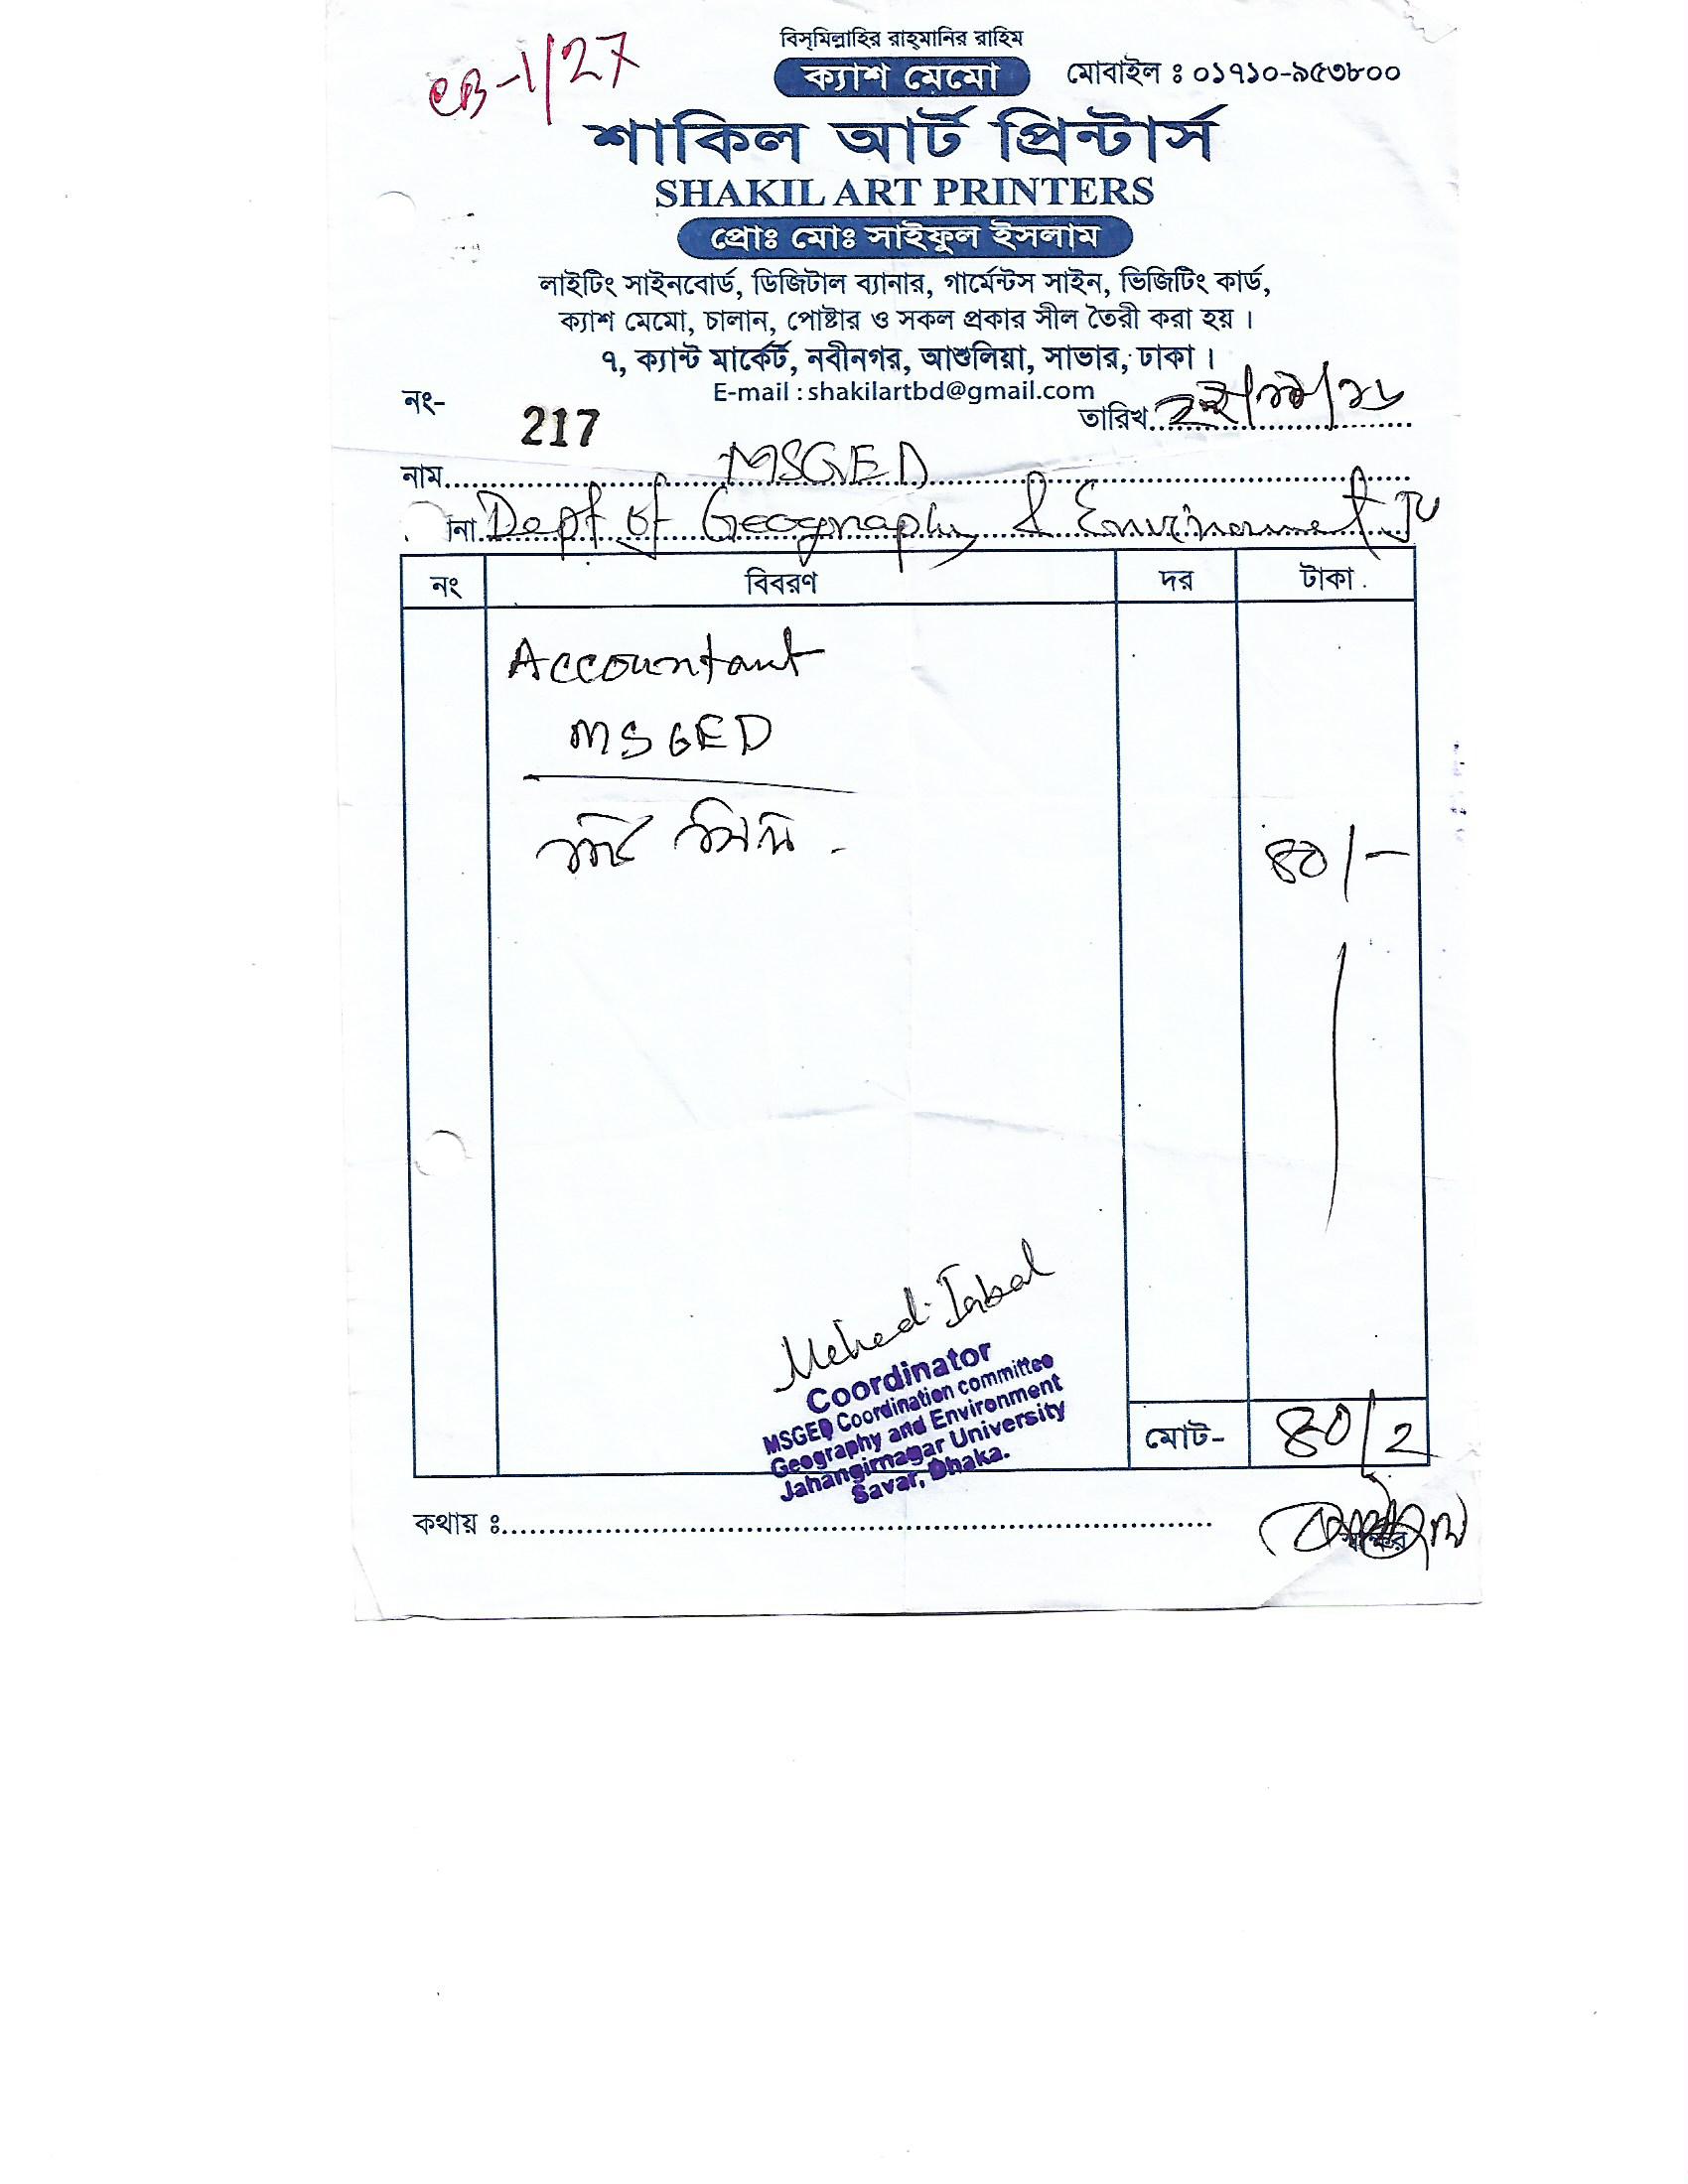 CB-1/27
বিস্‌মিল্লাহির রাহ্‌মানির রাহিম
ক্যাশ মেমো
মোবাইল ঃ ০১৭১০-৯৫৩৮০০
শাকিল আর্ট প্রিন্টার্স
SHAKIL ART PRINTERS
প্রোঃ মোঃ সাইফুল ইসলাম
লাইটিং সাইনবোর্ড, ডিজিটাল ব্যানার, গার্মেন্টস সাইন, ভিজিটিং কার্ড,
ক্যাশ মেমো, চালান, পোষ্টার ও সকল প্রকার সীল তৈরী করা হয় ।
৭, ক্যান্ট মার্কেট, নবীনগর, আশুলিয়া, সাভার, ঢাকা ।
E-mail : shakilartbd@gmail.com
নং- 217 তারিখ
নাম MSGED
না Dept of Geography & Environment JU
নং বিবরণ দর টাকা
Accountant
MSGED
৪০/-
Mehedi Iqbal
Coordinator
MSGED Coordination committee
Geography and Environment
Jahangirnagar University
Savar, Dhaka.
মোট- ৪০/
কথায় ঃ
স্বাক্ষর